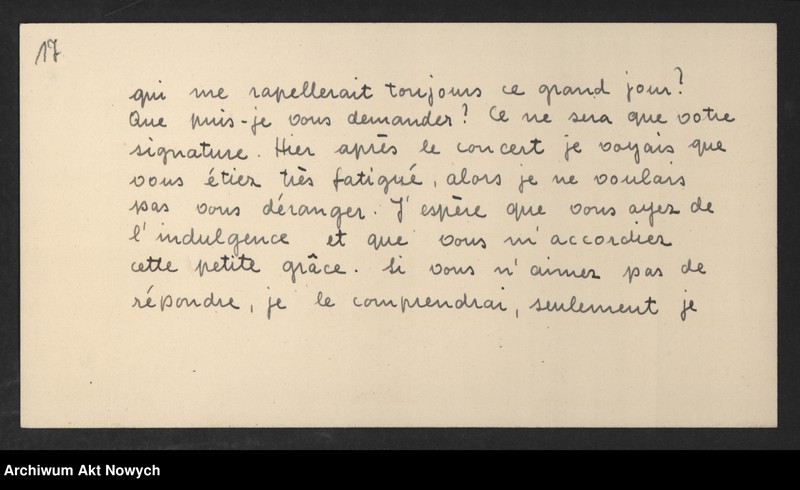 17
qui me rapellerait toujours ce grand jour?
Que puis-je vous demander? Ce ne sera que votre
signature. Hier après le concert je voyais que
vous étiez très fatigué, alors je ne voulais
pas vous déranger. J'espère que vous ayez de
l'indulgence et que vous m'accordiez
cette petite grâce. Si vous n'aimez pas de
répondre, je le comprendrai, seulement je
Archiwum Akt Nowych